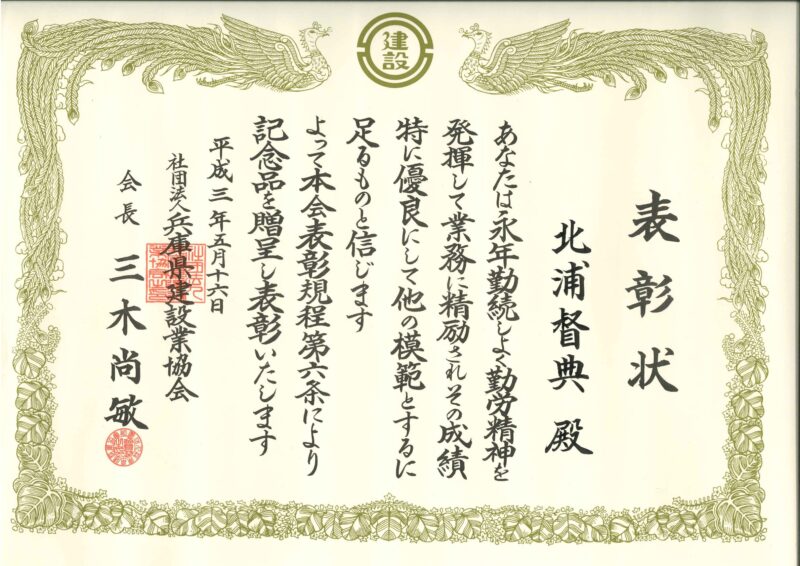 建設
表彰状
北浦督典 殿
あなたは永年勤続しよく勤労精神を
発揮して業務に精励されその成績
特に優良にして他の模範とするに
足るものと信じます
よって本会表彰規程第六条により
記念品を贈呈し表彰いたします
平成三年五月十六日
社団法人兵庫県建設業協会
会長 三木尚敏